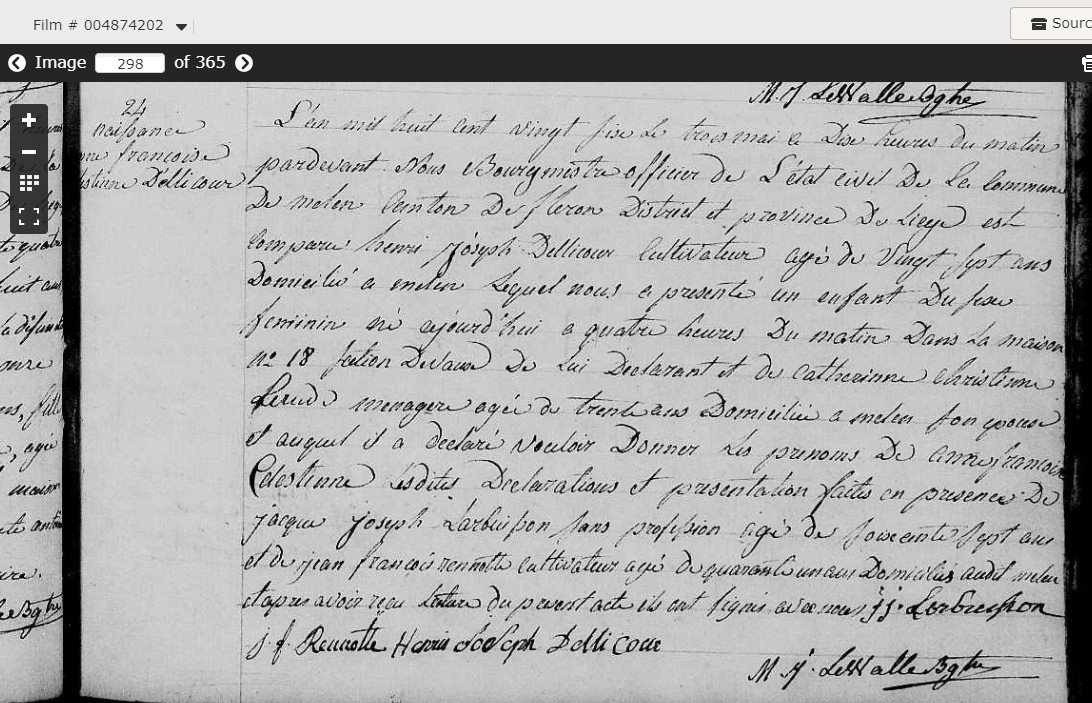 Film # 004874202
Sourc
Image 298 of 365
M. J. LeWalle Bghe
24
naissance
françoise
Dellicour
L'an mil huit cent vingt six Le trois mai a Dix heures du matin
pardevant Nous Bourgmistre officier de L'état civil De La commune
De melen Canton De fleron District et province De Liege est
Comparu henri joseph Dellicour Cultivateur agé de vingt sept ans
Domicilié a melen Lequel nous a presenté un enfant Du sexe
feminin né ajourd'hui a quatre heures Du matin Dans La maison
n° 18 section De Lui Declarant et de catherinne christinne
menagere agée de trente ans Domiciliée a melen son epouse
et auquel il a declaré vouloir Donner Les prenoms De anne francoise
Celestinne Lesdites Declarations et presentation faites en presence De
jacque joseph Larbuisson sans profession agé de soixante sept ans
et de jean francois rennotte cultivateur agé de quarante un ans Domiciliés audit melen
et apres avoir reçu Lecture du present acte ils ont signés avec nous j j. Lerbuisson
j. f. Rennotte Henri Joseph Dellicour
M. J. LeWalle Bghe